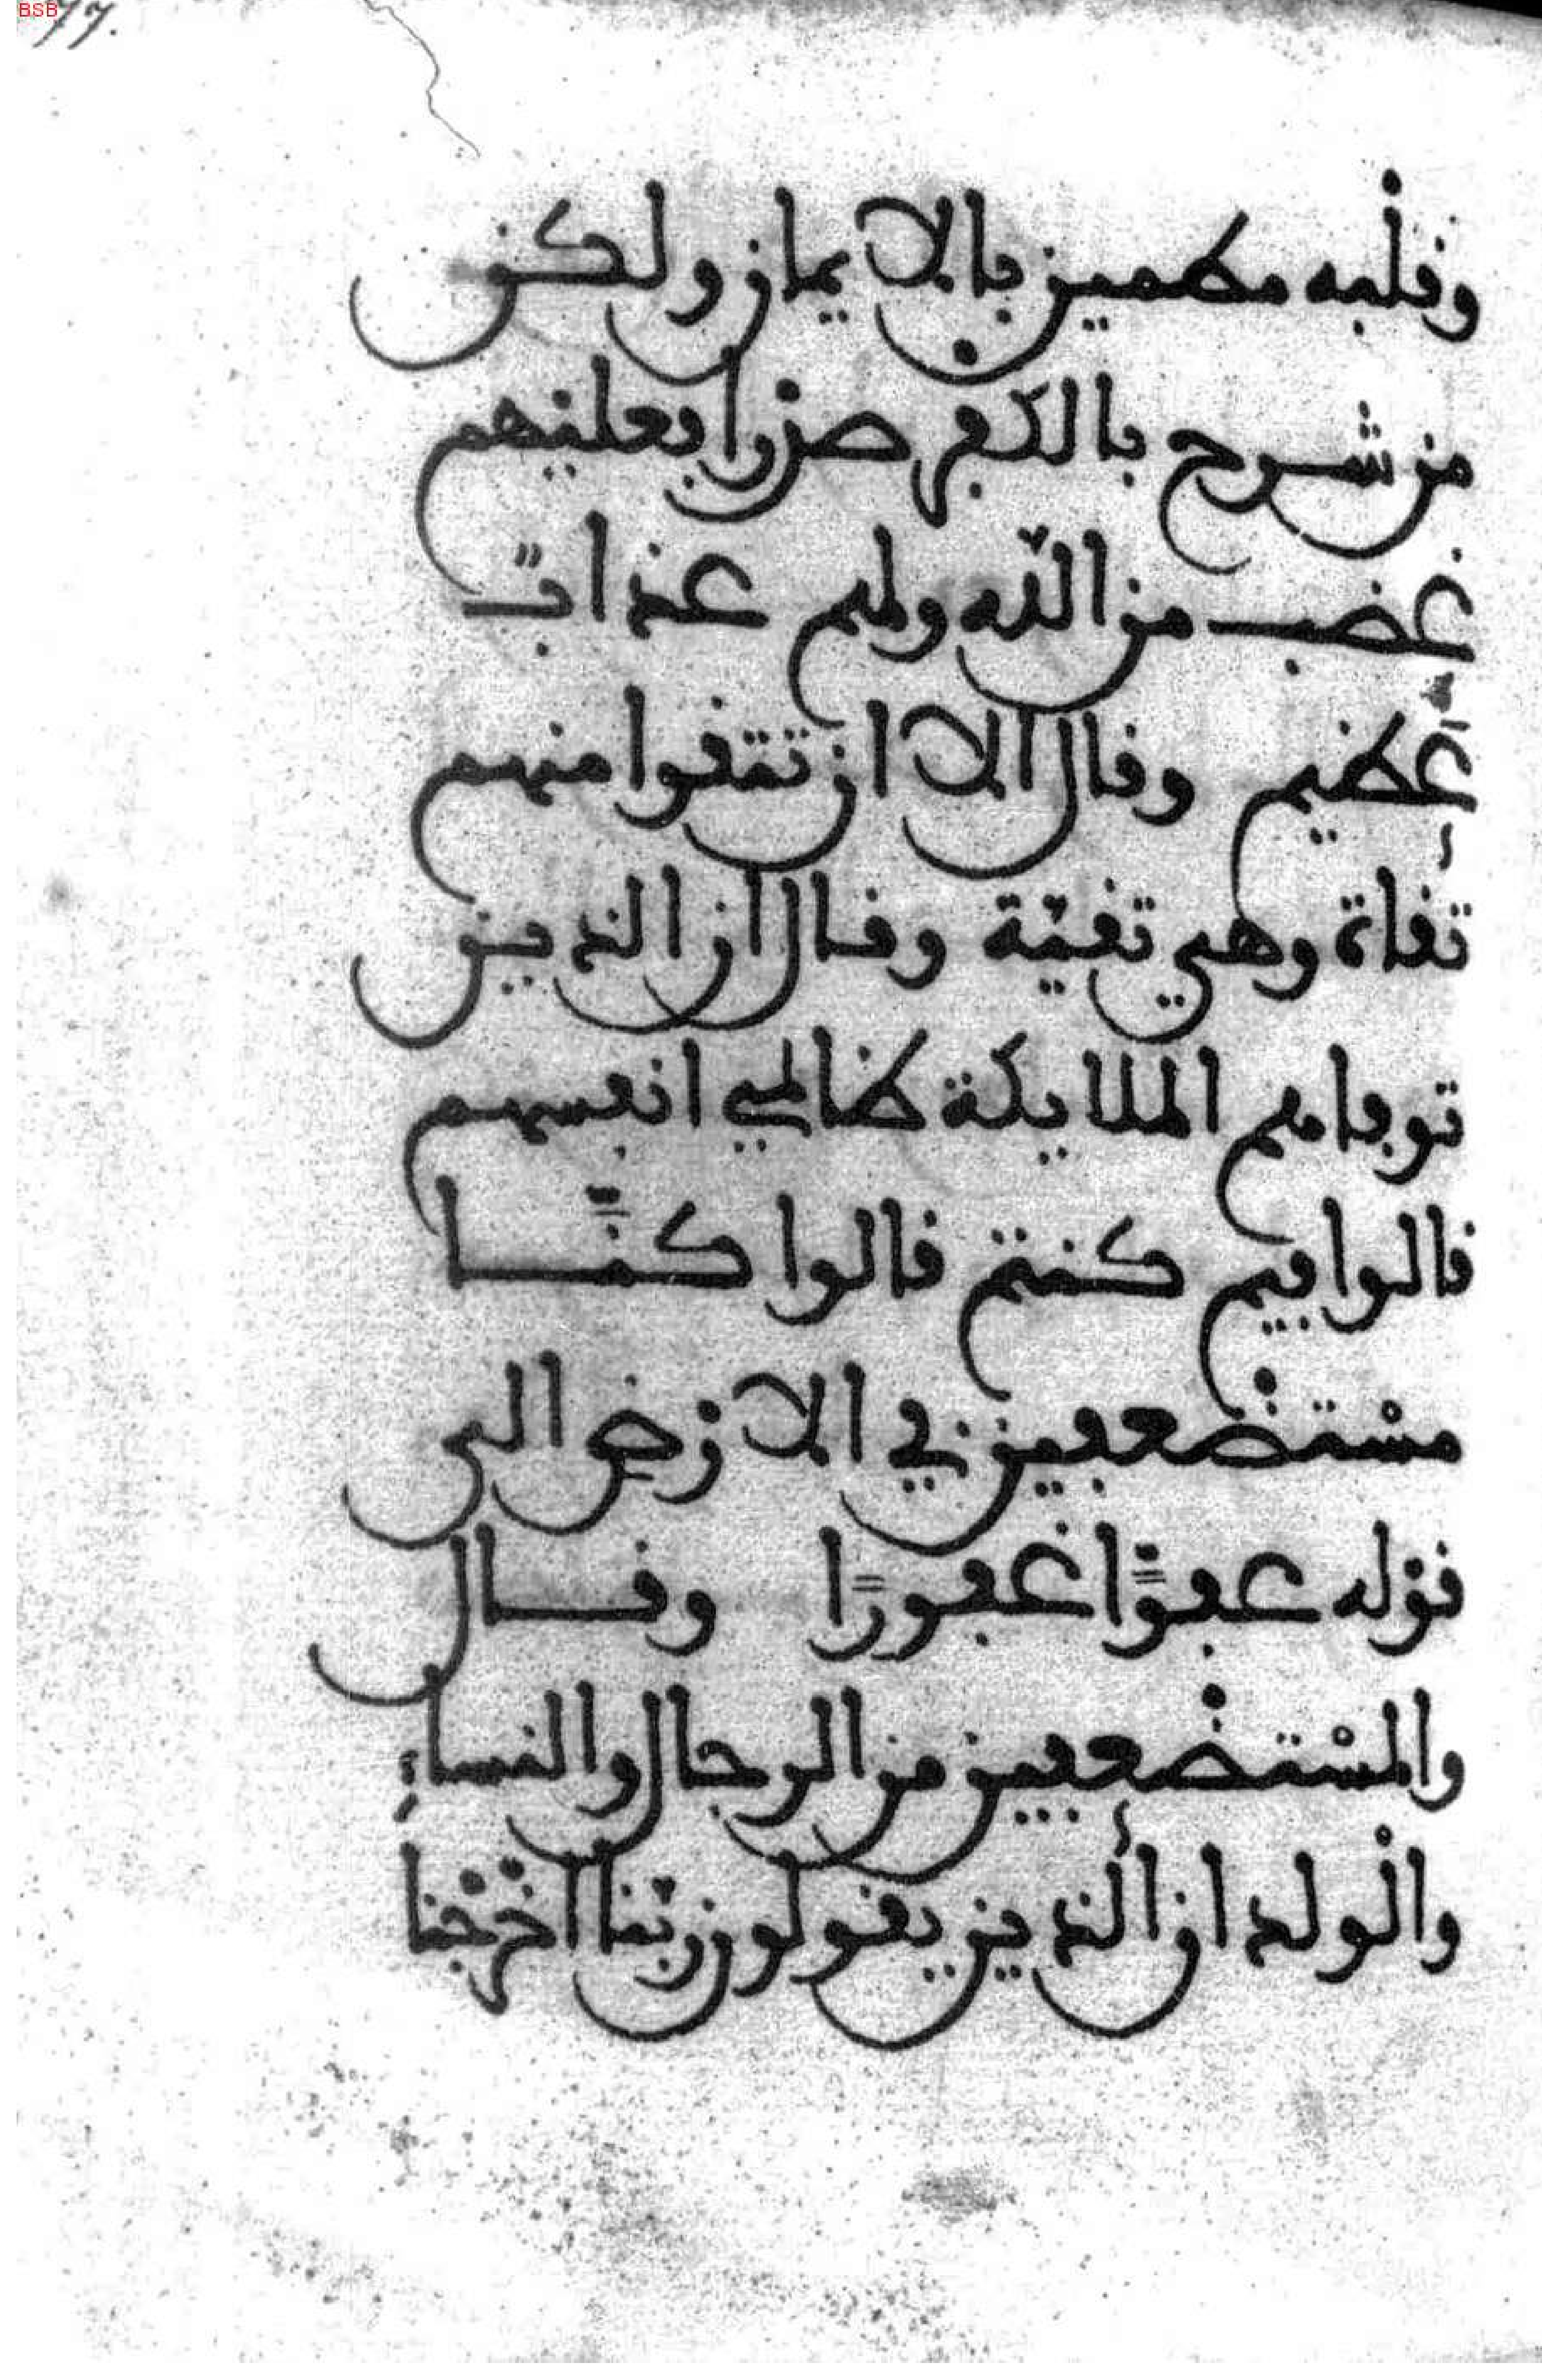 BSB
77.
وقلْبه مطمين بالايمان ولكن
من شرح بالكفر صدرا فعليهم
غضب من اللّه ولهم عذابٌ
عظيم وقال الا ان تتقوا منهم
تقاة وهي تقيّة وقال ان الذين
توفاهم الملايكة ظالمي انفسهم
قالوا فيم كنتم قالوا كنَّا
مسْتضعفين في الارض الى
قوْله عفوًّا غفورًا وقال
والمسْتضْعفين من الرجال والنساءِ
والْولدان الذين يقولون ربّنا اخْرجْنا